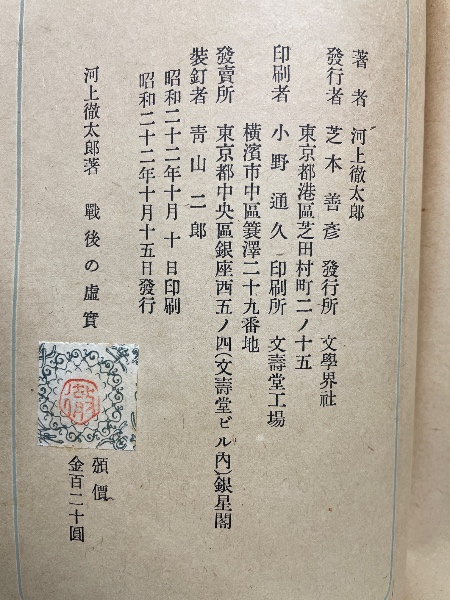 著者 河上徹太郎
發行者 芝本善彦 發行所 文學界社
東京都港區芝田村町二ノ十五
印刷者 小野通久 印刷所 文壽堂工場
橫濱市中區蓑澤二十九番地
發賣所 東京都中央區銀座西五ノ四(文壽堂ビル內)銀星閣
裝釘者 靑山二郎
昭和二十二年十月十日印刷
昭和二十二年十月十五日發行
河上徹太郎著 戰後の虛實
頒價
金百二十圓